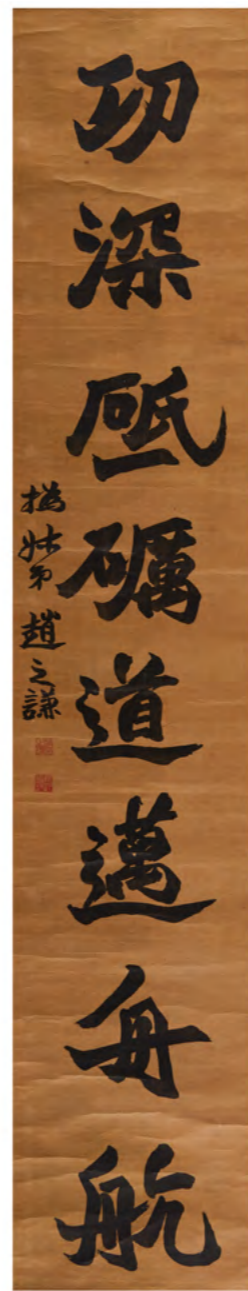 功深砥礪道邁舟航
撝叔弟趙之謙